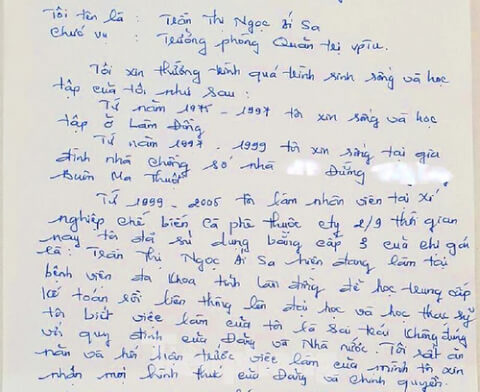 Tôi tên là : Trần Thị Ngọc Ái Sa
Chức vụ : Trưởng phòng Quản trị VPTU.
Tôi xin tường trình quá trình sinh sống và học
tập của tôi như sau :
Từ năm 1975 - 1997 tôi xin sống và học
tập ở Lâm Đồng
Từ năm 1997 - 1999 tôi xin sống tại gia
đình nhà chồng số nhà Đường
Buôn Ma Thuột
Từ 1999 - 2005 tôi làm nhân viên tại xí
nghiệp chế biến cà phê thuộc cty 2/9 thời gian
này tôi đã sử dụng bằng cấp 3 của chị gái
là : Trần Thị Ngọc Ái Sa hiện đang làm tại
bệnh viện đa khoa tỉnh Lâm đồng để học trung cấp
kế toán rồi liên thông lên đại học và học thạc sỹ
tôi biết việc làm của tôi là sai trái không đúng
với quy định của Đảng và Nhà nước. Tôi rất ăn
năn và hối hận trước việc làm của mình tôi xin
nhận mọi hình thức của Đảng và chính quyền.